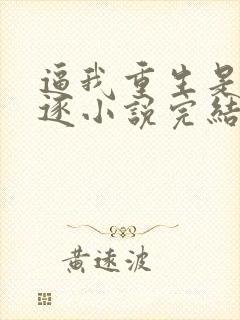 逼我重生是
逐小說完結
黃遠波